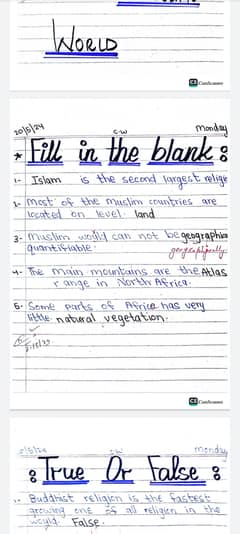 WORLD
CS CamScanner
20/5/24
C.W
Monday
* Fill in the blank :
1- Islam is the second largest religio
2- most of the muslim countries are
located on level land
3- muslim world can not be geographica
quantifiable.
geographically
4- The main mountains are the Atlas
range in North Africa.
5- Some parts of Africa has very
little natural vegetation.
CS CamScanner
C.W
monday
: True Or False :
Buddhist religion is the fastest
growing one of all religion in the
world. False.